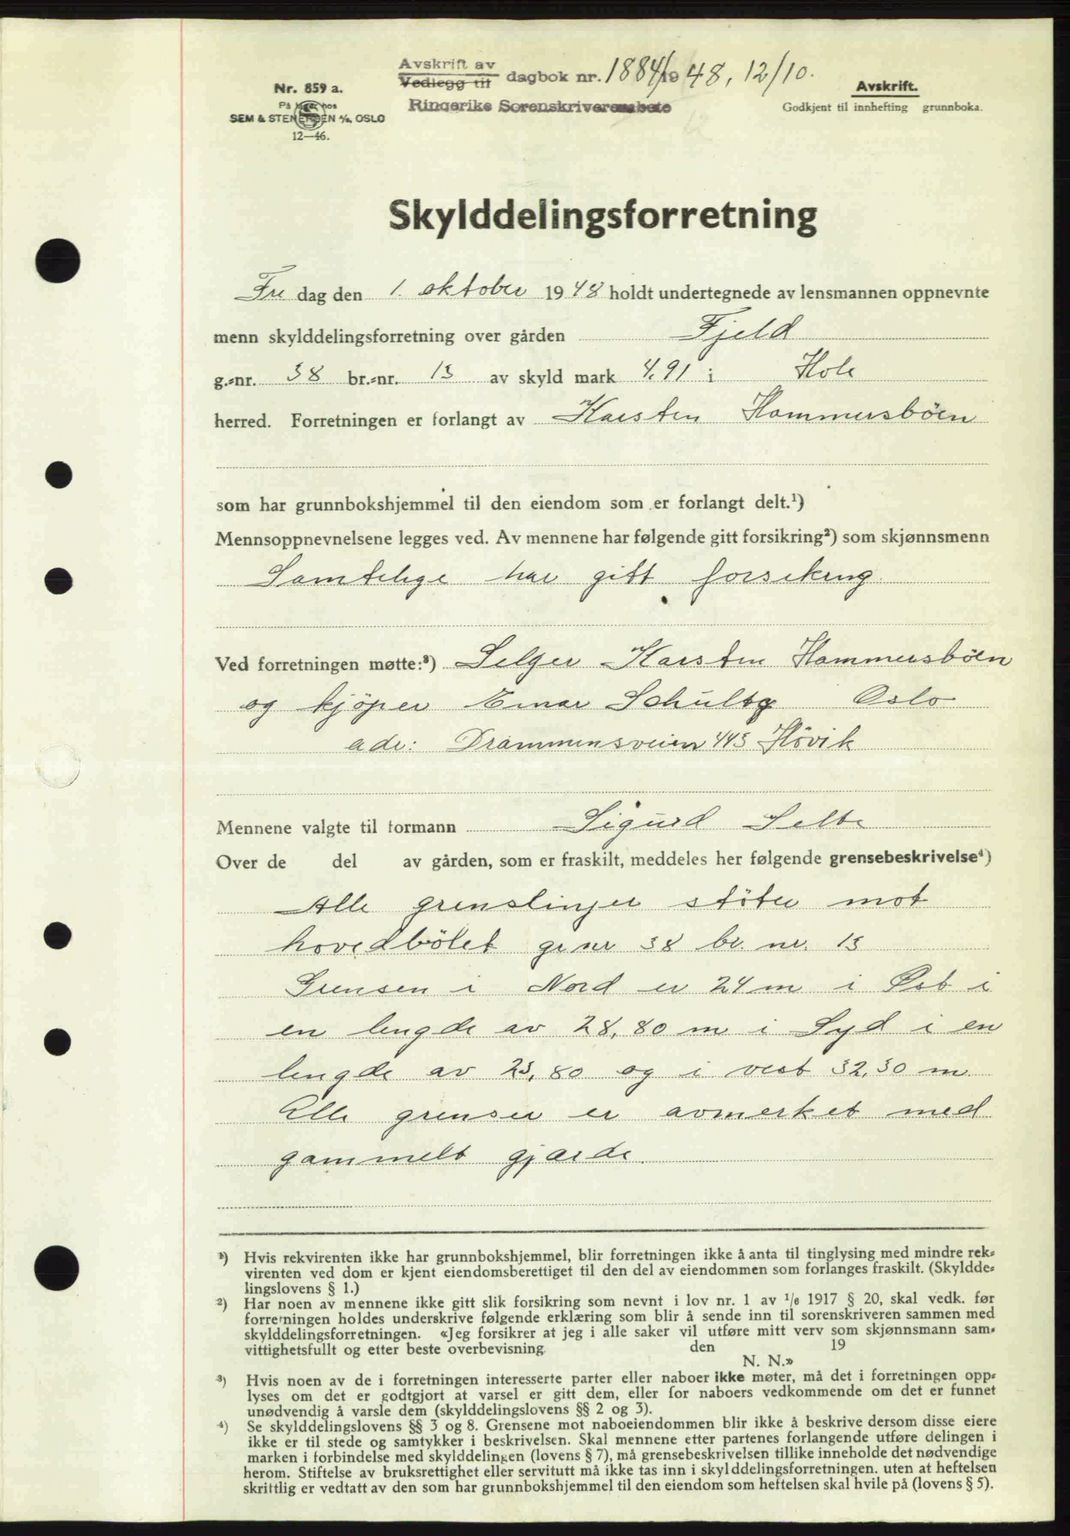 Avskrift av
Vedlegg til dagbok nr. 1884/1948, 12/10.
Ringerike Sorenskriverembete
Nr. 859 a.
På lager hos
SEM & STENERSEN A/S, OSLO
12—46.
Avskrift.
Godkjent til innhefting grunnboka.
Skylddelingsforretning
Fre dag den 1. oktober 1948 holdt undertegnede av lensmannen oppnevnte
menn skylddelingsforretning over gården Fjeld
g.-nr. 38 br.-nr. 13 av skyld mark 4,91 i Hole
herred. Forretningen er forlangt av Karsten Hammersböen
som har grunnbokshjemmel til den eiendom som er forlangt delt.¹)
Mennsoppnevnelsene legges ved. Av mennene har følgende gitt forsikring²) som skjønnsmenn
Samtelige har gitt forsikring
Ved forretningen møtte:³) Selger Karsten Hammersböen
og kjöper Einar Schultz Oslo
adr: Drammensveien 443 Hövik
Mennene valgte til formann Sigurd Selte
Over de del av gården, som er fraskilt, meddeles her følgende grensebeskrivelse⁴)
Alle grenslinjer stöter mot
hovedbölet gr nr 38 br. nr. 13
Grensen i Nord er 24 m i Øst i
en lengde av 28,80 m i Syd i en
lengde av 23,80 og i vest 32,30 m.
Alle grenser er avmerket med
gammelt gjærde.
¹) Hvis rekvirenten ikke har grunnbokshjemmel, blir forretningen ikke å anta til tinglysing med mindre rek-
virenten ved dom er kjent eiendomsberettiget til den del av eiendommen som forlanges fraskilt. (Skyldde-
lingslovens § 1.)
²) Har noen av mennene ikke gitt slik forsikring som nevnt i lov nr. 1 av 1/6 1917 § 20, skal vedk. før
forretningen holdes underskrive følgende erklæring som blir å sende inn til sorenskriveren sammen med
skylddelingsforretningen. «Jeg forsikrer at jeg i alle saker vil utføre mitt verv som skjønnsmann sam-
vittighetsfullt og etter beste overbevisning. den 19
N. N.»
³) Hvis noen av de i forretningen interesserte parter eller naboer ikke møter, må det i forretningen opp-
lyses om det er godtgjort at varsel er gitt dem, eller for naboers vedkommende om det er funnet
unødvendig å varsle dem (skylddelingslovens §§ 2 og 3).
⁴) Se skylddelingslovens §§ 3 og 8. Grensene mot naboeiendommen blir ikke å beskrive dersom disse eiere
ikke er til stede og samtykker i beskrivelsen. Skal mennene etter partenes forlangende utføre delingen i
marken i forbindelse med skylddelingen (lovens § 7), må grensebeskrivelsen tillike inneholde det nødvendige
herom. Stiftelse av bruksrettighet eller servitutt må ikke tas inn i skylddelingsforretningen. uten at heftelsen
skriftlig er vedtatt av den som har grunnbokshjemmel til den eiendom som heftelsen skal hvile på (lovens § 5).